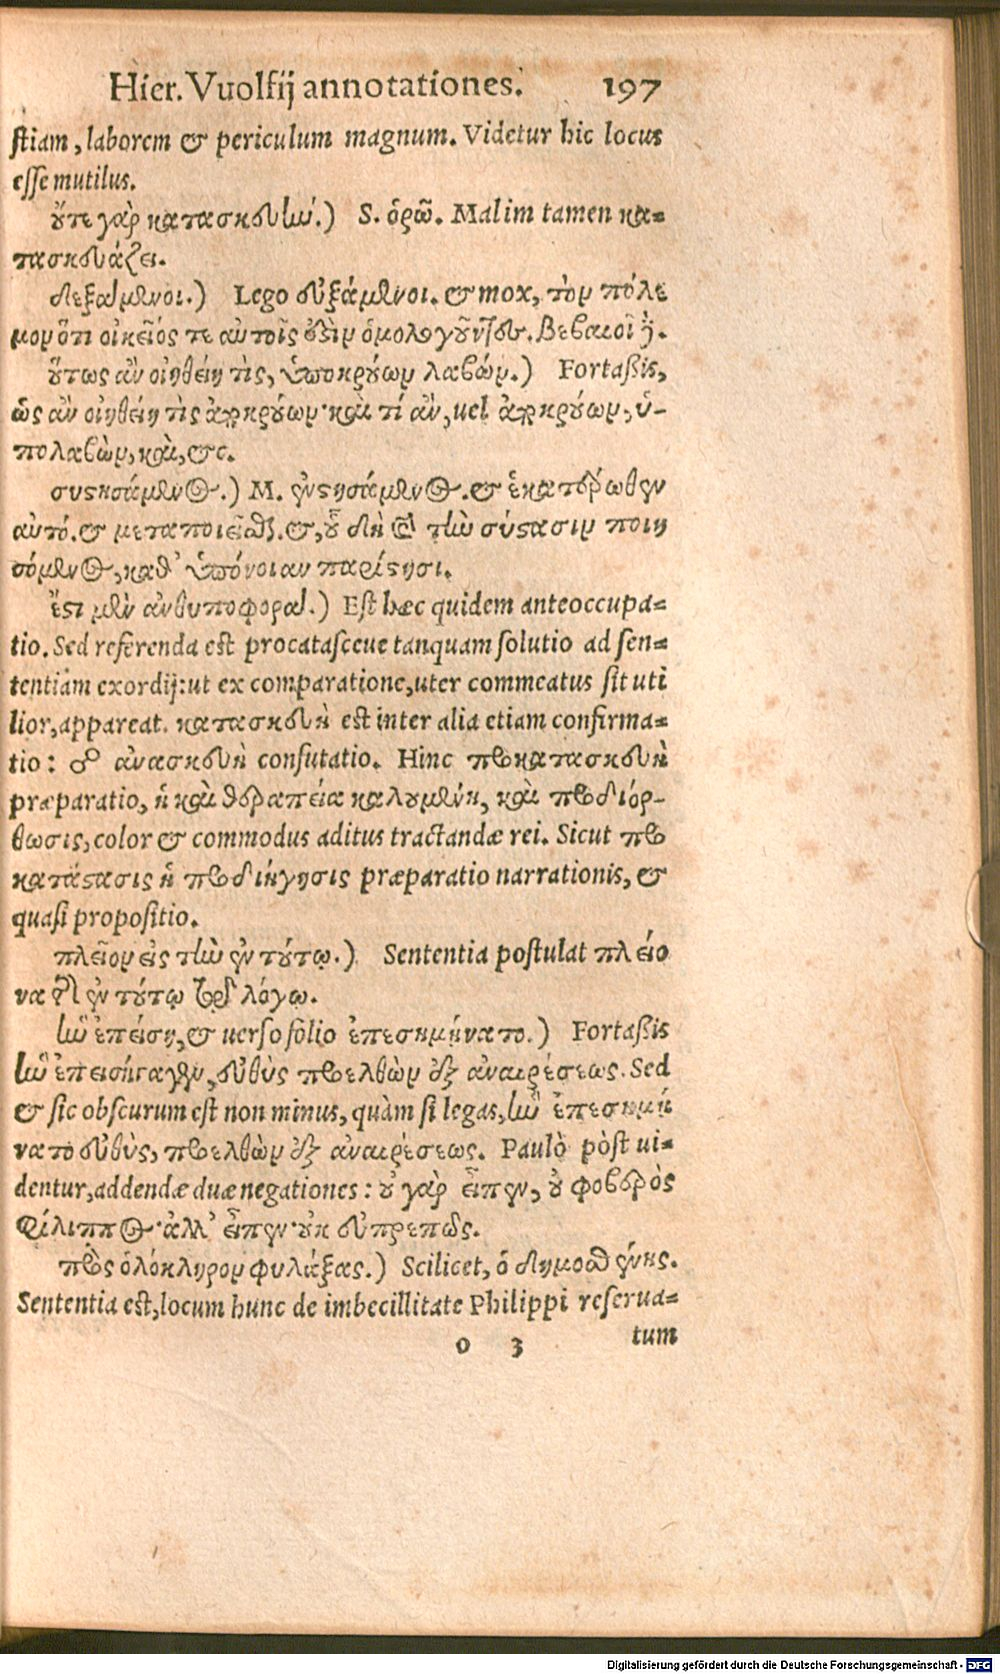 Hier. Vuolfij annotationes. 197
stiam, laborem & periculum magnum. Videtur hic locus
esse mutilus.
οὔτε γὰρ κατασκευὴν.) S. ὁρῶ. Malim tamen κα-
τασκευάζει.
δεξάμενοι.) Lego εὐξάμενοι. & mox, τὸν πόλε
μον ὅτι οἰκεῖός τε αὐτοῖς ἐστὶν ὁμολογοῦντες. βεβαιοῖ
οὕτως ἂν οἰηθείη τὶς, ὑποκρούων λαβών.) Fortaßis,
ὡς ἂν οἰηθείη τὶς παρακρούων· καὶ τί ἂν, uel παρακρούων, ὑ-
πολαβὼν, καὶ, &c.
συστησάμενος.) M. ἐνστησάμενος. & ἑκατέρωθεν
αὐτό. & μεταποιεῖσθαι. &, οὗ δὴ καὶ τὴν σύστασιν ποιη
σόμενος, καθ' ὑπόνοιαν παρίστησι.
ἔστι μὲν ἀνθυποφορά.) Est hæc quidem anteoccupa-
tio. Sed referenda est procatasceue tanquam solutio ad sen-
tentiam exordij: ut ex comparatione, uter commeatus sit uti
lior, appareat. κατασκευὴ est inter alia etiam confirma-
tio: ἀνασκευὴ confutatio. Hinc προκατασκευὴ
præparatio, ἡ καὶ θεραπεία καλουμένη, καὶ προδιόρ-
θωσις, color & commodus aditus tractandæ rei. Sicut προ
κατάστασις ἢ προδιήγησις præparatio narrationis, &
quasi propositio.
πλεῖον εἰς τὴν ἐν τούτῳ.) Sententia postulat πλείο
να τῶν ἐν τούτῳ τῷ λόγῳ.
ἣν ἐπείση, & uerso folio ἐπεσημήνατο.) Fortaßis
ἣν ἐπεισήγαγεν, εὐθὺς προελθὼν ἐξ ἀναιρέσεως. Sed
& sic obscurum est non minus, quàm si legas, ἣν ἐπεσημή
νατο εὐθὺς, προελθὼν ἐξ ἀναιρέσεως. Paulò pòst ui-
dentur, addendæ duæ negationes: οὐ γὰρ εἶπεν, οὐ φοβερὸς
Φίλιππος· ἀλλ' εἶπεν· οὐκ εὐπρεπῶς.
πρὸς ὁλόκληρον φυλάξας.) Scilicet, ὁ δημοσθένης.
Sententia est, locum hunc de imbecillitate Philippi reserua-
o 3 tum
Digitalisierung gefördert durch die Deutsche Forschungsgemeinschaft - DFG